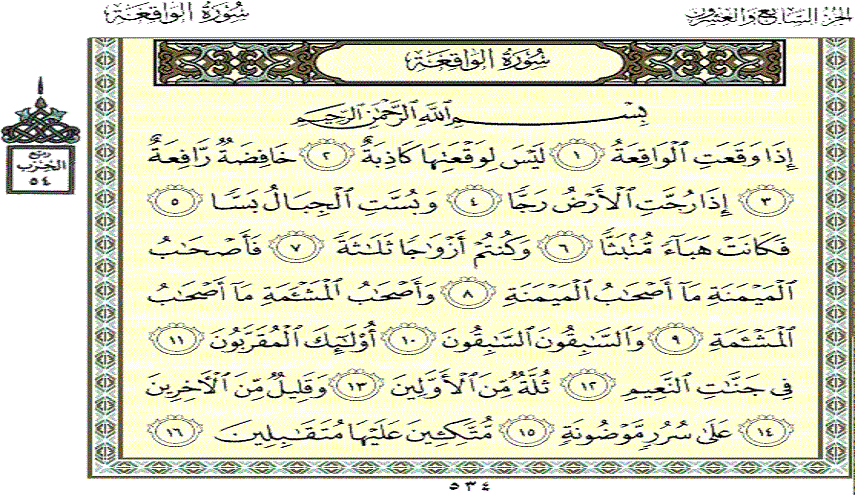 الجزء السابع والعشرون
سُورَةُ الوَاقِعَة
سُورَةُ الوَاقِعَة
بِسْمِ اللَّهِ الرَّحْمَٰنِ الرَّحِيمِ
إِذَا وَقَعَتِ الْوَاقِعَةُ ١ لَيْسَ لِوَقْعَتِهَا كَاذِبَةٌ ٢ خَافِضَةٌ رَّافِعَةٌ
٣ إِذَا رُجَّتِ الْأَرْضُ رَجًّا ٤ وَبُسَّتِ الْجِبَالُ بَسًّا ٥
فَكَانَتْ هَبَاءً مُّنْبَثًّا ٦ وَكُنتُمْ أَزْوَاجًا ثَلَاثَةً ٧ فَأَصْحَابُ
الْمَيْمَنَةِ مَا أَصْحَابُ الْمَيْمَنَةِ ٨ وَأَصْحَابُ الْمَشْئَمَةِ مَا أَصْحَابُ
الْمَشْئَمَةِ ٩ وَالسَّابِقُونَ السَّابِقُونَ ١٠ أُوْلَٰئِكَ الْمُقَرَّبُونَ ١١
فِي جَنَّاتِ النَّعِيمِ ١٢ ثُلَّةٌ مِّنَ الْأَوَّلِينَ ١٣ وَقَلِيلٌ مِّنَ الْآخِرِينَ
١٤ عَلَىٰ سُرُرٍ مَّوْضُونَةٍ ١٥ مُّتَّكِئِينَ عَلَيْهَا مُتَقَابِلِينَ ١٦
ربع
الحزب
٥٤
٥٣٤